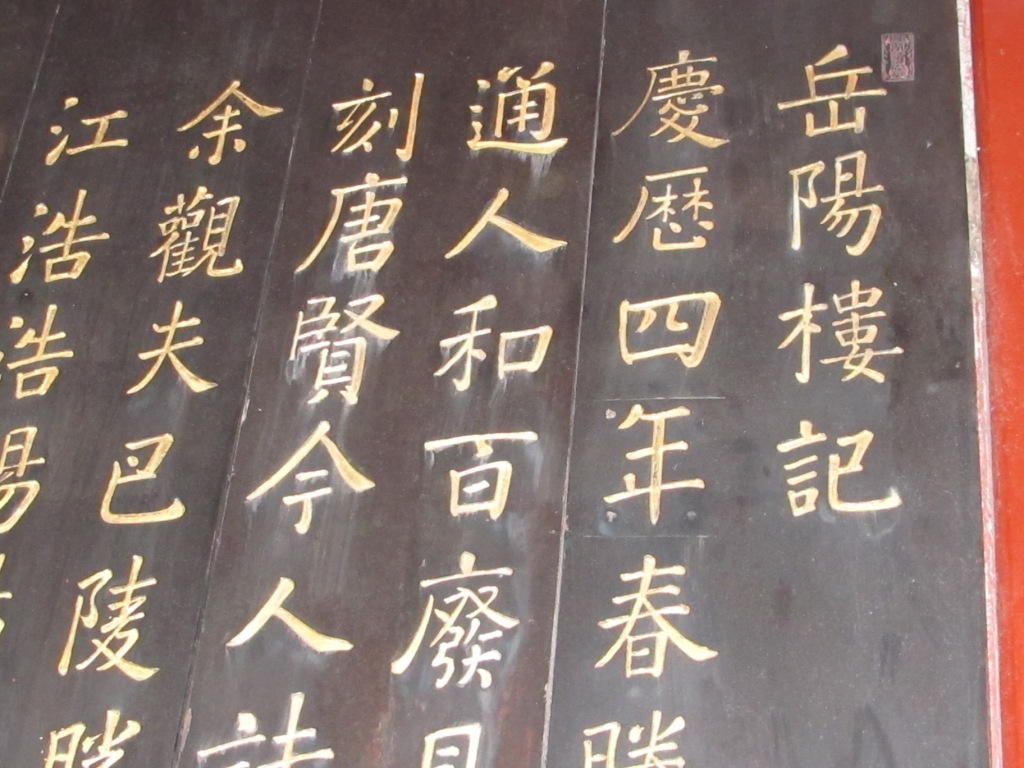 岳陽樓記
慶歷四年春滕
通人和百廢具
刻唐賢今人詩
余觀夫巴陵勝
江浩
浩浩湯